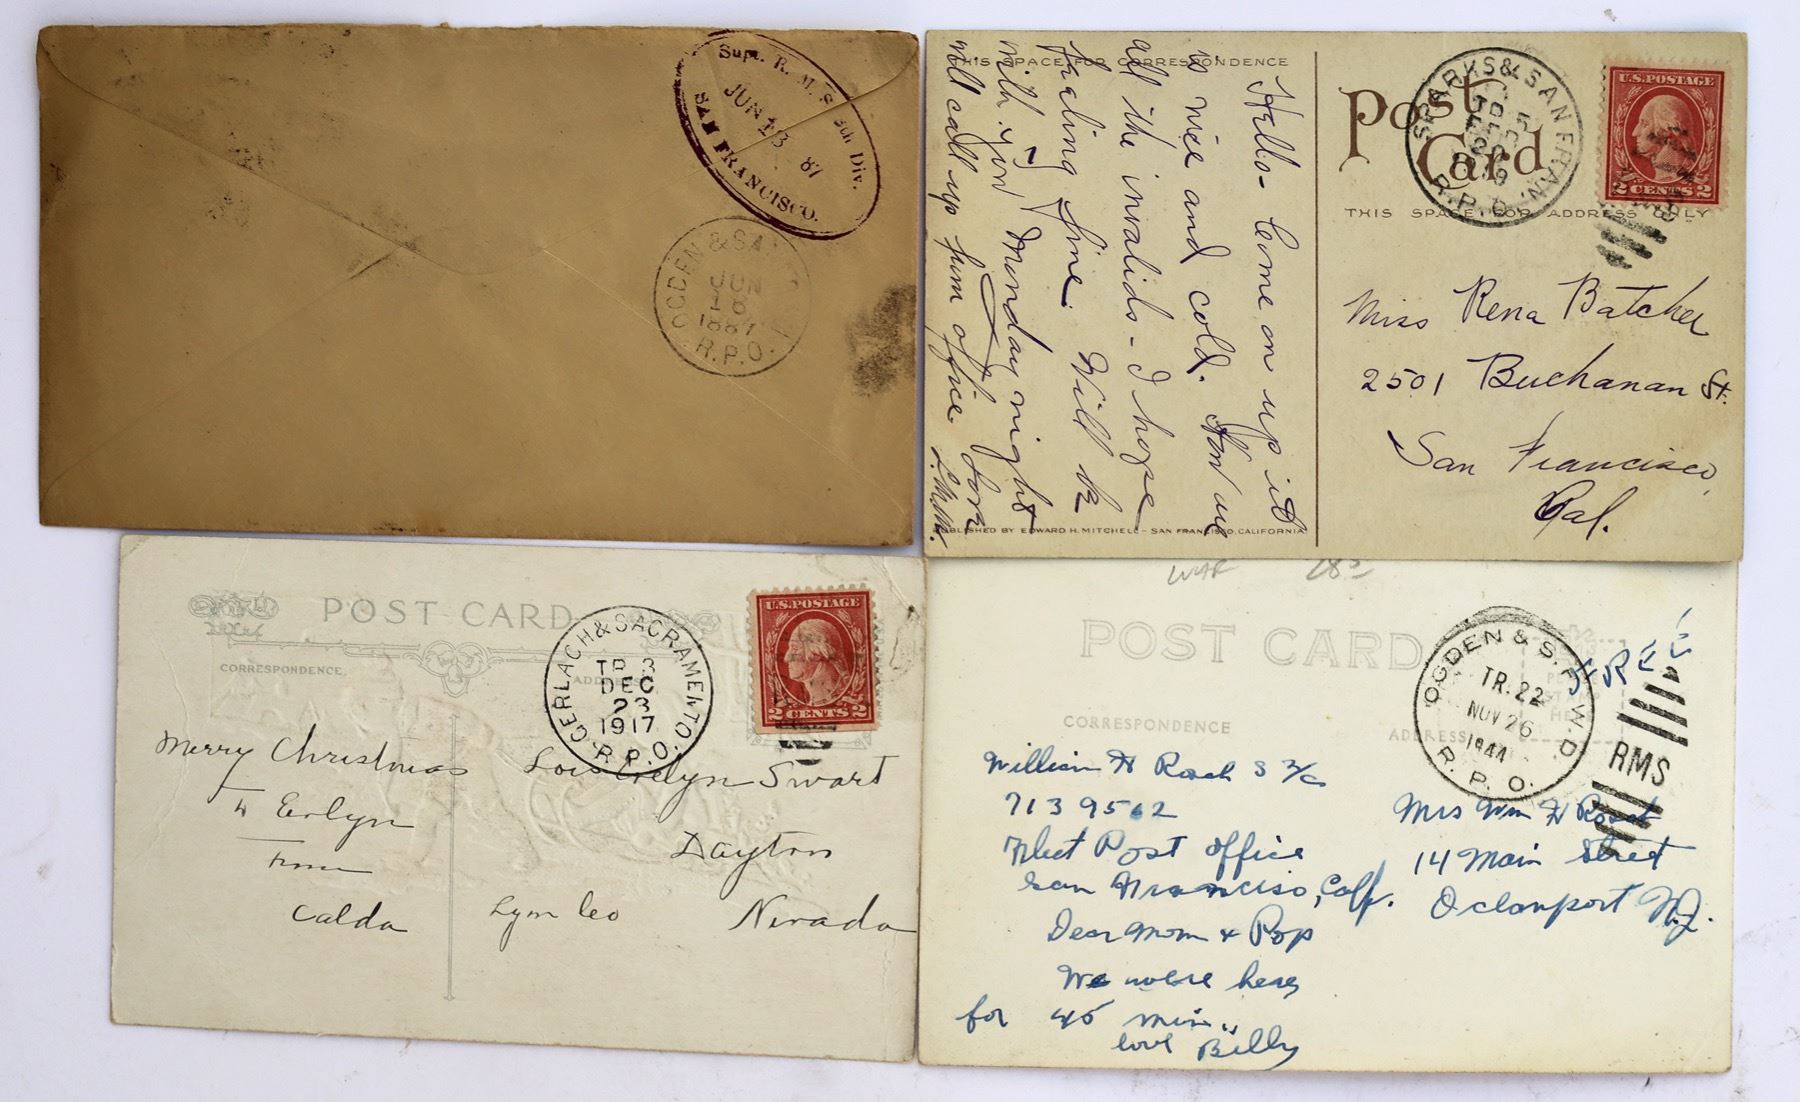 Supt. R. M. S. 8th Div.
JUN 18 87
SAN FRANCISCO.
OGDEN & SAN
JUN
18
1887
R.P.O.
THIS SPACE FOR CORRESPONDENCE
Hello - Come on up it
is nice and cold. How are
all the invalids - I hope
feeling fine. Will be
with you Monday night
will call up from office
L.M.M.
PUBLISHED BY EDWARD H. MITCHELL - SAN FRANCISCO, CALIFORNIA
Post
Card
SPARKS & SAN FRAN.
R.P.O.
U.S. POSTAGE
2 CENTS 2
THIS SPACE FOR ADDRESS ONLY
Miss Rena Batcher
2501 Buchanan St.
San Francisco,
Cal.
POST CARD
CORRESPONDENCE
ADDRESS
GERLACH & SACRAMENTO.
TR. 3
DEC
23
1917
R.P.O.
U.S. POSTAGE
2 CENTS 2
Merry Christmas
to Evelyn
from
Calda
Lois Evelyn Swart
Dayton
Lyon Co
Nevada
POST CARD
CORRESPONDENCE
ADDRESS
OGDEN & S.F. W.D.
TR. 22
NOV 26
1944
R.P.O.
FREE
RMS
William H Roach S 2/c
7139562
Fleet Post office
San Francisco, Calf.
Dear Mom & Pop
We were here
for 45 min.
love Billy
Mrs Wm H
14 Main Street
Oceanport N.J.